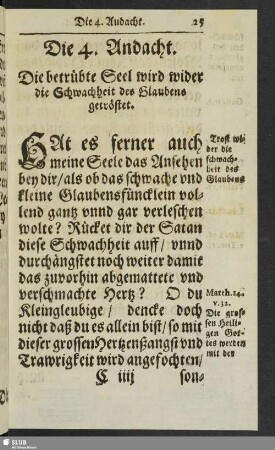 Die 4. Andacht. 25
Die 4. Andacht.
Die betrübte Seel wird wider
die Schwachheit des Glaubens
getröstet.
HAt es ferner auch
meine Seele das Ansehen
bey dir / als ob das schwache vnd
kleine Glaubensfüncklein vol-
lend gantz vnnd gar verleschen
wolte? Rücket dir der Satan
diese Schwachheit auff / vnnd
durchängstet noch weiter damit
das zuvorhin abgemattete vnd
verschmachte Hertz? O du
Kleingleubige / dencke doch
nicht daß du es allein bist / so mit
dieser grossen Hertzensangst vnd
Trawrigkeit wird angefochten /
C iiij son-
Trost wi-
der die
schwach-
heit des
Glaubens
Matth. 14.
v. 31.
Die gros-
sen Heili-
gen Got-
tes werden
mit der
SLUB